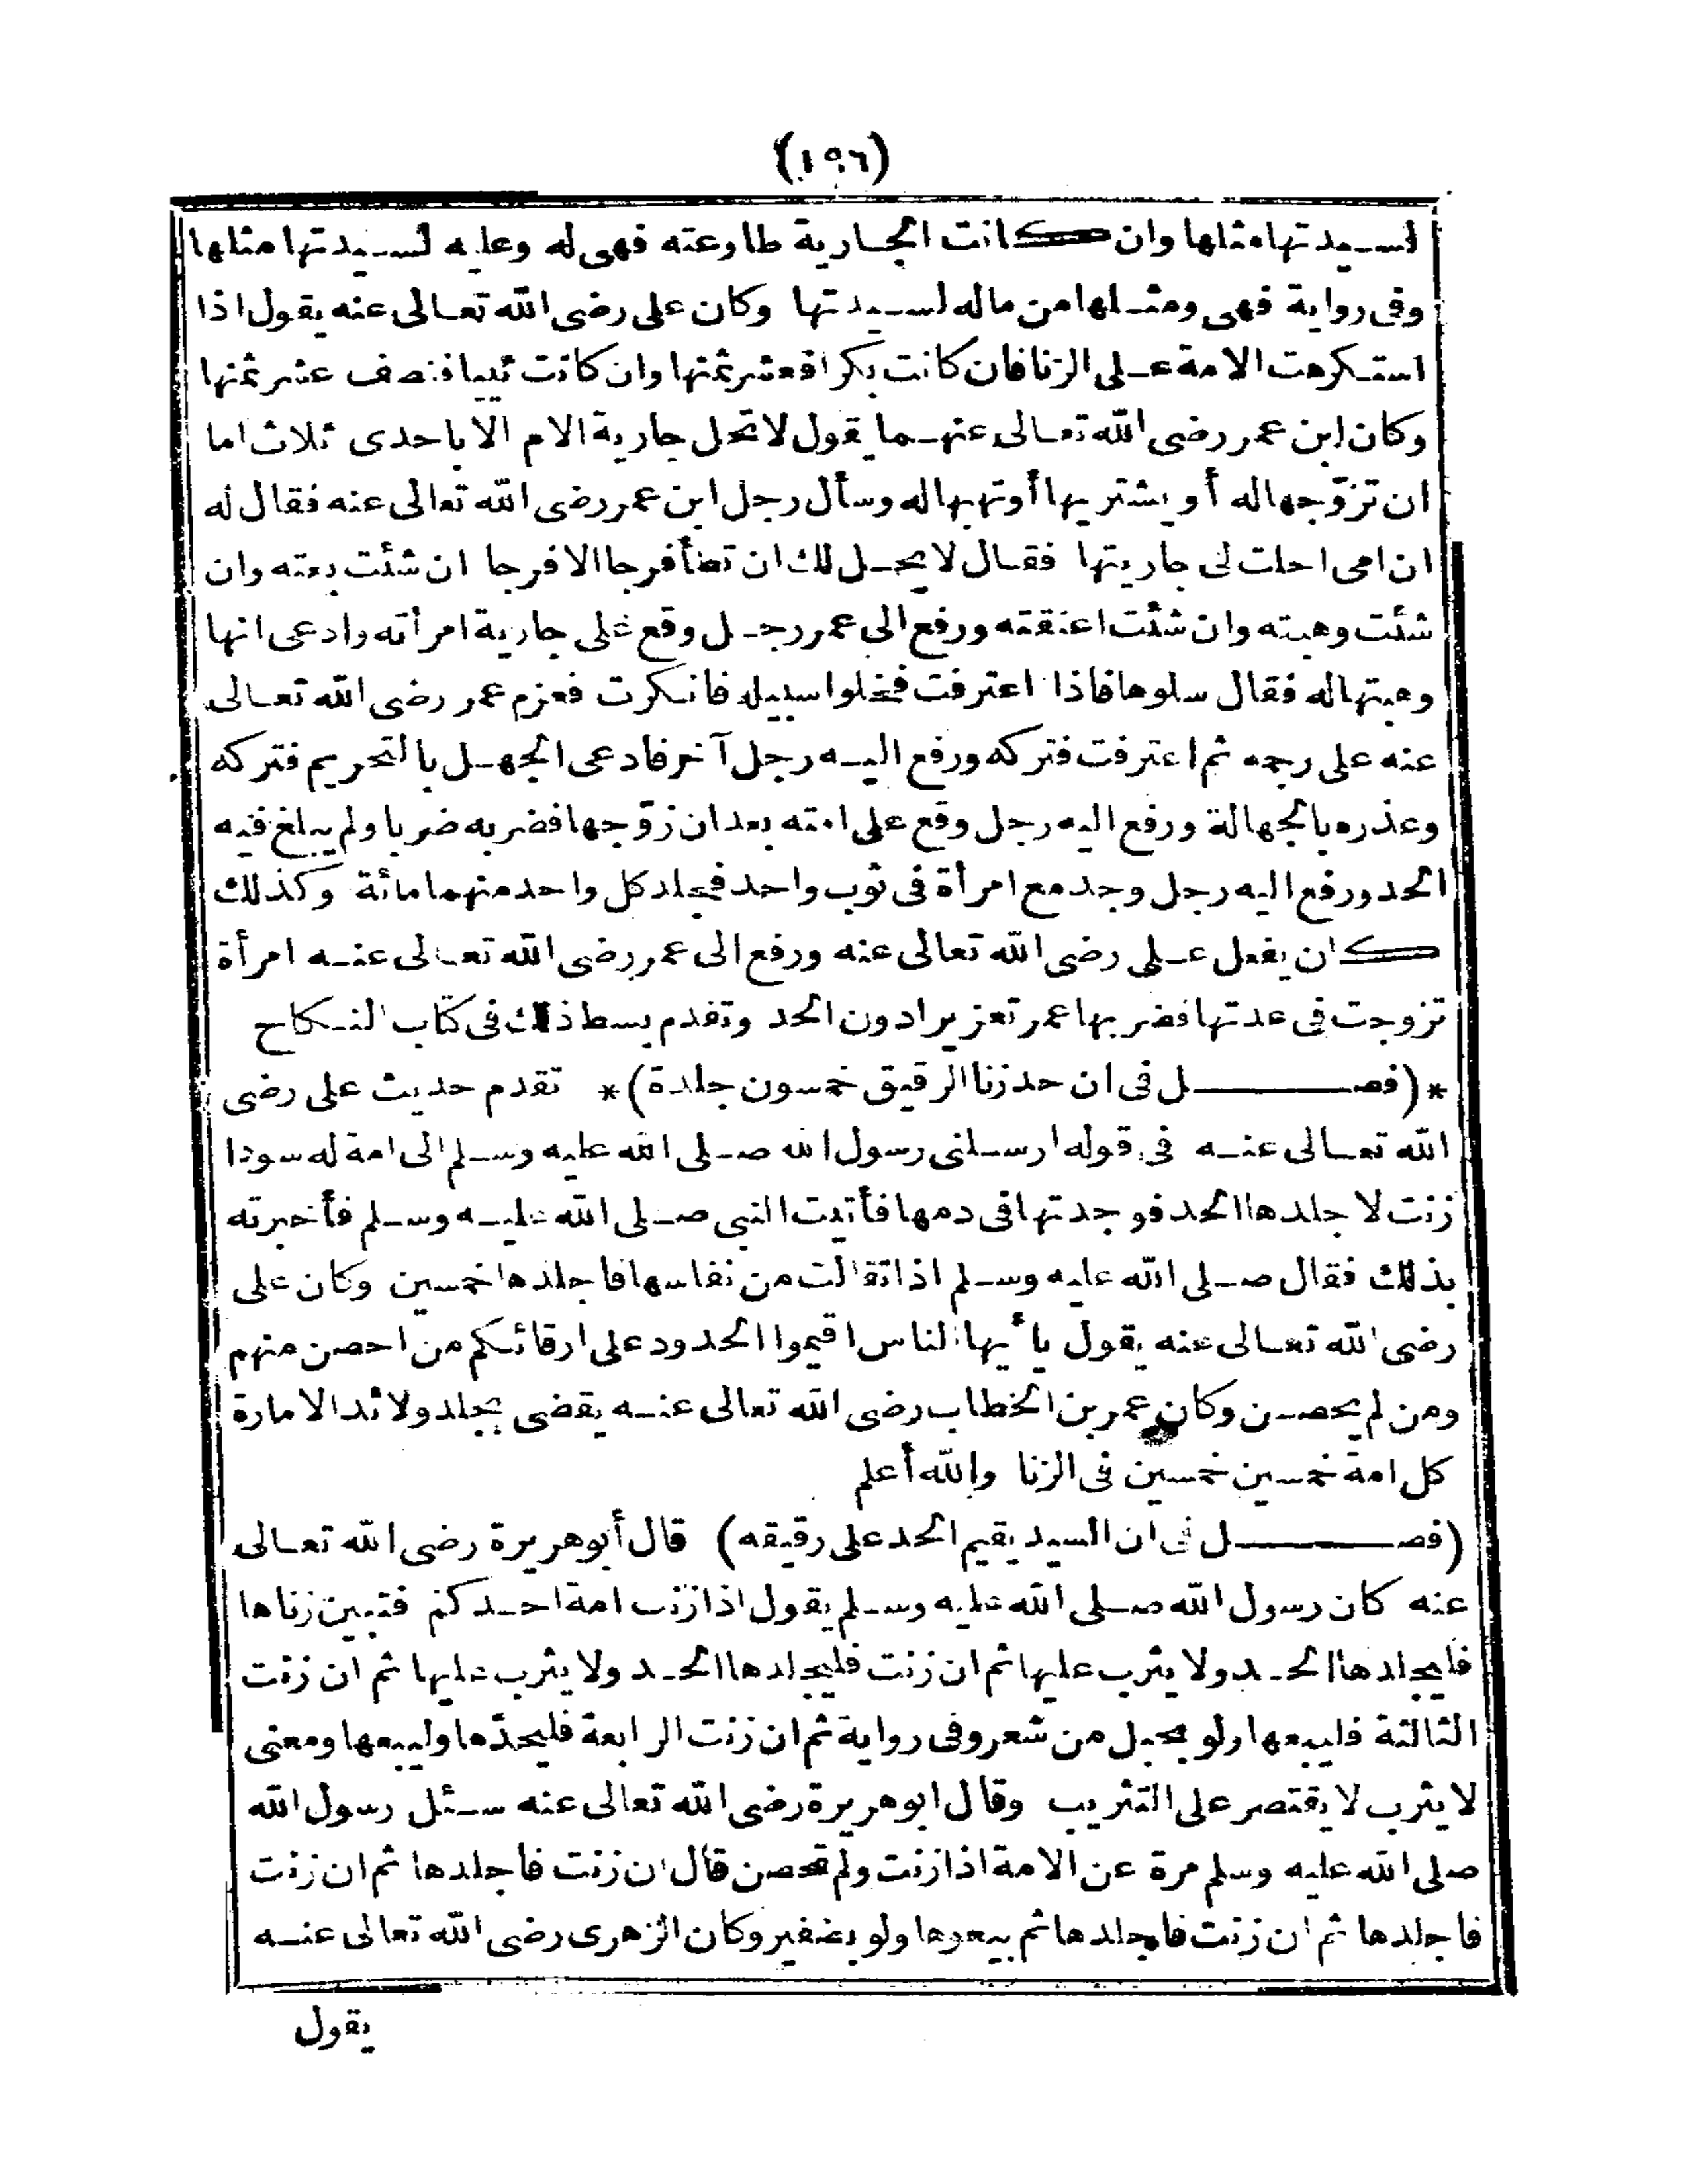 (١٩٦)
لسيدتها مثلها وان كانت الجارية طاوعته فهى له وعليه لسيدتها مثلها
وفى رواية فهى ومثلها من ماله لسيدتها وكان على رضى الله تعالى عنه يقول اذا
استكرهت الامة على الزنا فان كانت بكرا فعشر ثمنها وان كانت ثيبا فنصف عشر ثمنها
وكان ابن عمر رضى الله تعالى عنهما يقول لا تحل جارية الام الا باحدى ثلاث اما
ان تزوّجها له أو يشتريها أو تهبها له وسأل رجل ابن عمر رضى الله تعالى عنه فقال له
ان امى احلت لى جاريتها فقال لا يحل لك ان تطأ فرجا الا فرجا ان شئت بعته وان
شئت وهبته وان شئت اعتقته ورفع الى عمر رجل وقع على جارية امرأته وادعى انها
وهبتها له فقال سلوها فاذا اعترفت فخلوا سبيله فانكرت فعزم عمر رضى الله تعالى
عنه على رجمه ثم اعترفت فتركه ورفع اليه رجل آخر فادعى الجهل بالتحريم فتركه
وعذره بالجهالة ورفع اليه رجل وقع على امته بعد ان زوّجها فضربه ضربا ولم يبلغ فيه
الحد ورفع اليه رجل وجد مع امرأة فى ثوب واحد فجلد كل واحد منهما مائة وكذلك
كان يفعل على رضى الله تعالى عنه ورفع الى عمر رضى الله تعالى عنه امرأة
تزوجت فى عدتها فضربها عمر تعزيرا دون الحد وتقدم بسط ذلك فى كتاب النكاح
*(فصل فى ان حد زنا الرقيق خمسون جلدة)* تقدم حديث على رضى
الله تعالى عنه فى قوله ارسلنى رسول الله صلى الله عليه وسلم الى امة له سودا
زنت لاجلدها الحد فوجدتها فى دمها فأتيت النبى صلى الله عليه وسلم فأخبرته
بذلك فقال صلى الله عليه وسلم اذا تقالت من نفاسها فاجلدها خمسين وكان على
رضى الله تعالى عنه يقول يا أيها الناس اقيموا الحدود على ارقائكم من احصن منهم
ومن لم يحصن وكان عمر بن الخطاب رضى الله تعالى عنه يقضى بجلد ولائد الامارة
كل امة خمسين خمسين فى الزنا والله أعلم
(فصل فى ان السيد يقيم الحد على رقيقه) قال أبو هريرة رضى الله تعالى
عنه كان رسول الله صلى الله عليه وسلم يقول اذا زنت امة احدكم فتبين زناها
فليجلدها الحد ولا يثرب عليها ثم ان زنت فليجلدها الحد ولا يثرب عليها ثم ان زنت
الثالثة فليبعها ولو بحبل من شعر وفى رواية ثم ان زنت الرابعة فليحدّها وليبعها ومعنى
لا يثرب لا يقتصر على التثريب وقال ابو هريرة رضى الله تعالى عنه سئل رسول الله
صلى الله عليه وسلم مرة عن الامة اذا زنت ولم تحصن قال ان زنت فاجلدها ثم ان زنت
فاجلدها ثم ان زنت فاجلدها ثم بيعوها ولو بضفير وكان الزهرى رضى الله تعالى عنه
يقول